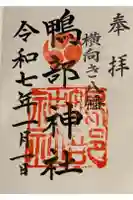 奉拝
横向き八幡
鴨部神社
令和七年一月十日